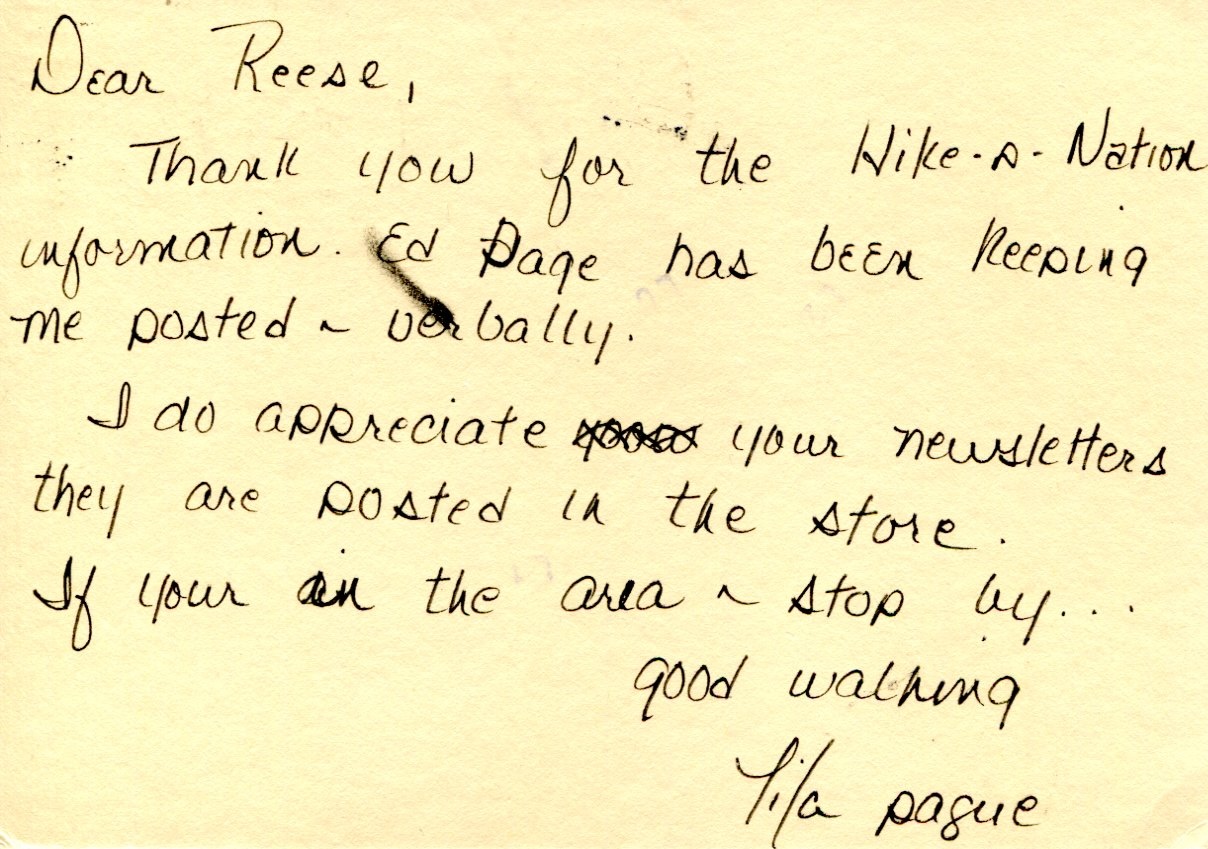 Dear Reese,
Thank you for the Hike-a-Nation
information. Ed Page has been keeping
me posted ~ verbally.
I do appreciate your newsletters
they are posted in the store.
If your in the area ~ stop by...
good walking
pague